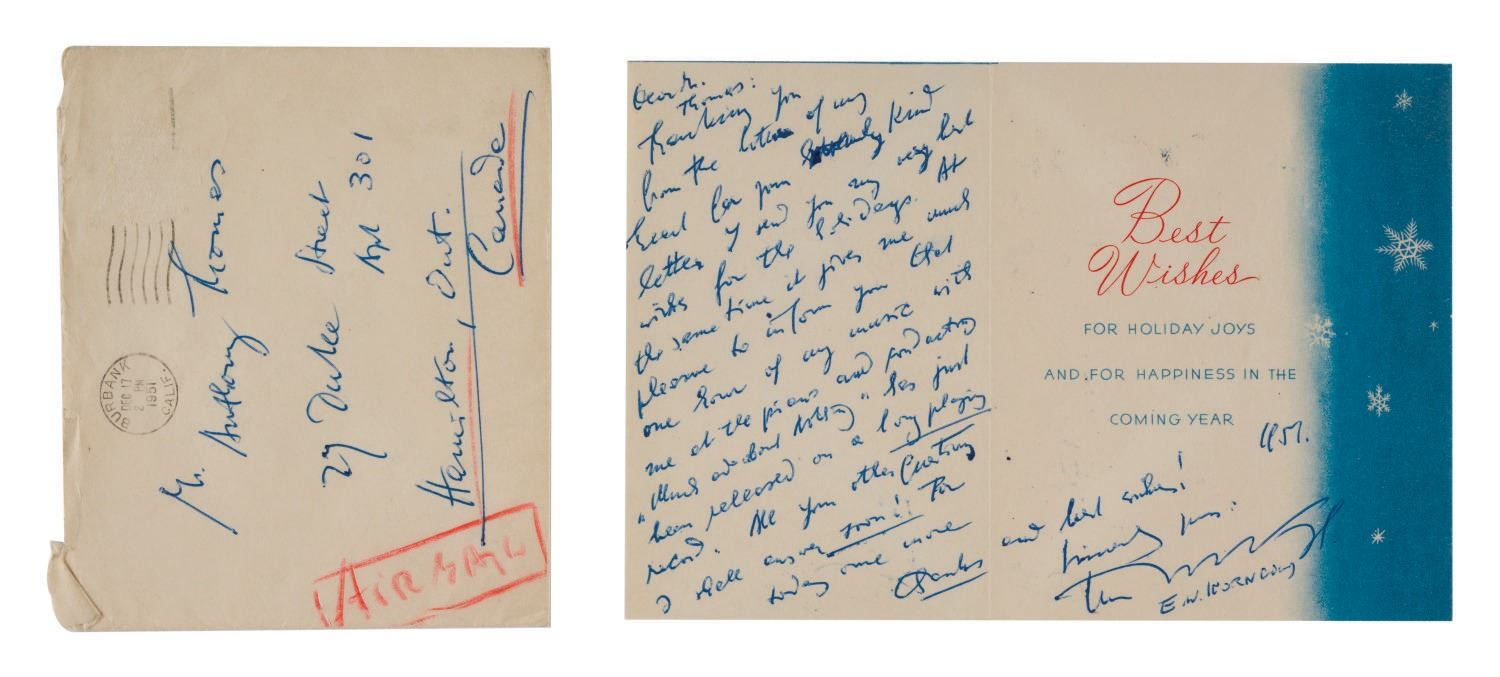 BURBANK
DEC 17
2 PM
1951
CALIF.
Mr. Anthony Thomas
27 Duke Street
Apt 301
Hamilton, Ont.
Canada
AIR MAIL
Dear Mr.
Thomas:
Thanking you
from the bottom of my
heart for your extremely kind
letter I send you my very best
wishes for the holidays. At
the same time it gives me much
pleasure to inform you that
one hour of my music with
me at the piano and conducting
"Much ado about Nothing" has just
been released on a long playing
record. All your other questions
I shall answer soon! For
today once more
thanks
Best
Wishes
FOR HOLIDAY JOYS
AND FOR HAPPINESS IN THE
COMING YEAR
1951.
and best wishes!
Sincerely yours:
E.W. KORNGOLD